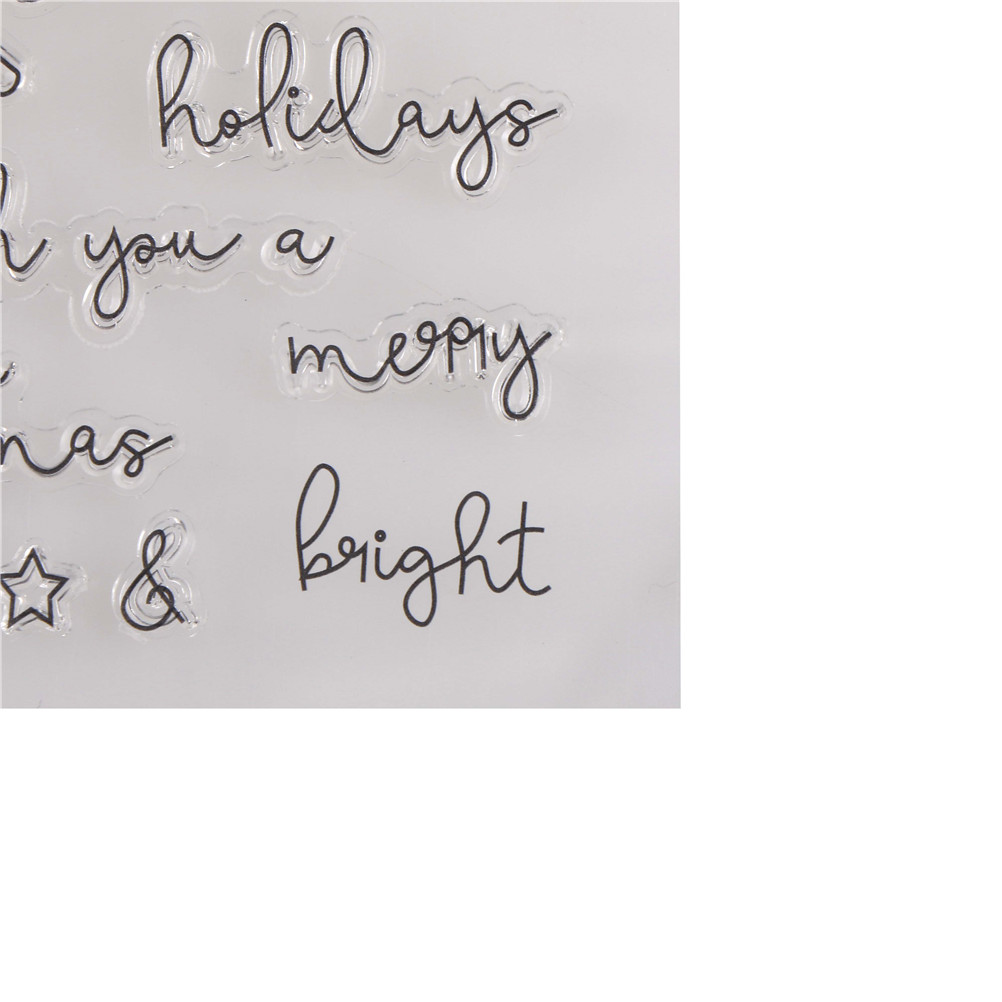 holidays
you a
merry
mas
&
bright